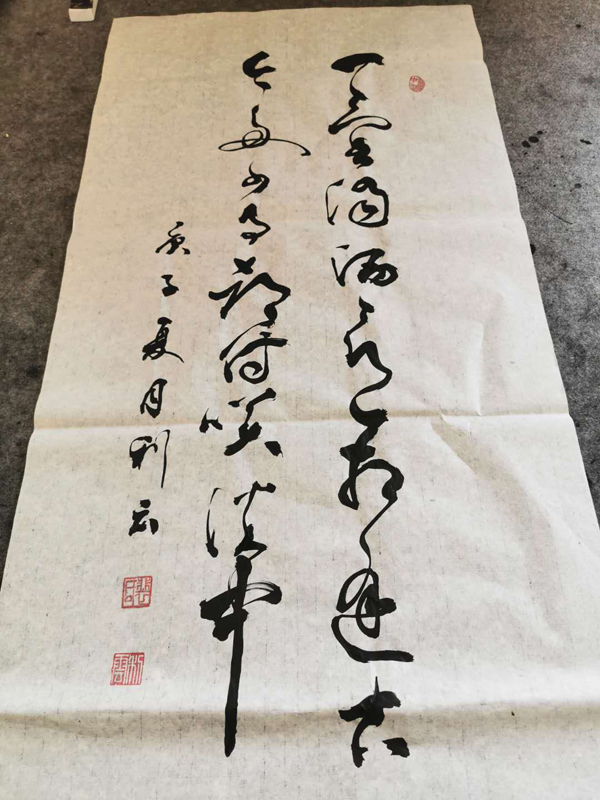 一壶濁酒喜相逢古
今多少事都付咲谈中
庚子夏月利云